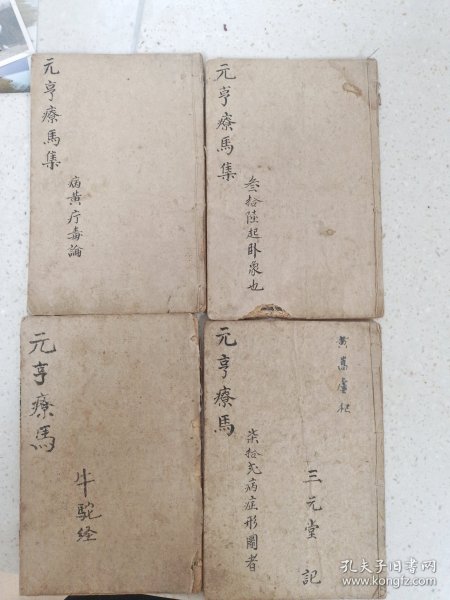 元亨療馬集
病黃疔毒論
元亨療馬集
叁拾陸起卧象也
元亨療馬
牛駝经
元亨療馬
柒拾弍病症形圖者
三元堂 記
孔夫子旧书网